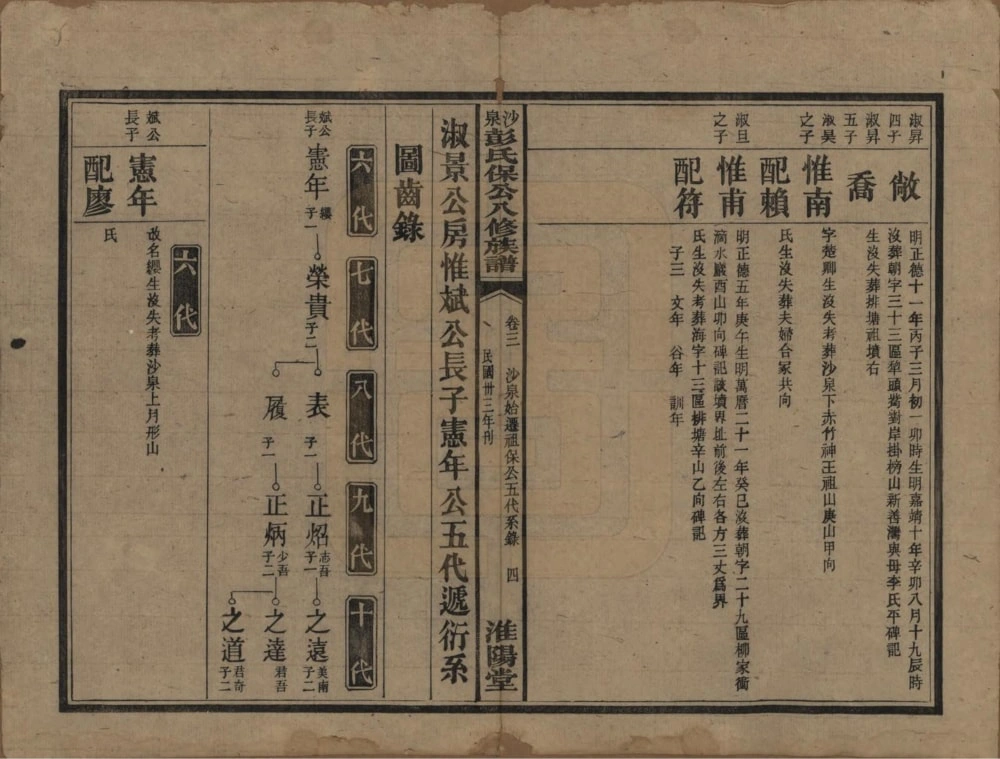 淑昇
四子
敞
明正德十一年丙子三月初一卯時生明嘉靖十年辛卯八月十九辰時
沒葬朝字三十三區犂頭嘴對岸掛榜山新善灣與母李氏平碑記
淑昇
五子
喬
生沒失葬排塘祖墳右
淑吳
之子
惟南
字楚卿生沒失考葬沙泉下赤竹神王祖山庚山甲向
配賴
氏生沒失葬夫婦合冢共向
淑旦
之子
惟甫
明正德五年庚午生明萬曆二十一年癸巳沒葬朝字二十九區柳家衝
滴水巖酉山卯向碑記該墳界址前後左右各方三丈爲界
配符
氏生沒失考葬海字十三區排塘辛山乙向碑記
子三 文年 谷年 訓年
沙泉彭氏保公八修族譜
卷三 沙泉始遷祖保公五代系錄 四
民國卅三年刊
淮陽堂
淑景公房惟斌公長子憲年公五代遞衍系
圖齒錄
六代 七代 八代 九代 十代
斌公
長子
憲年 纓 子一
榮貴 子二
表 子一
正炤 志吾 子一
之遠 美南 子二
履 子一
正炳 少吾 子二
之達 君吾 子二
之道 君奇 子二
六代
斌公
長子
憲年
改名纓生沒失考葬沙泉上月形山
配廖
氏